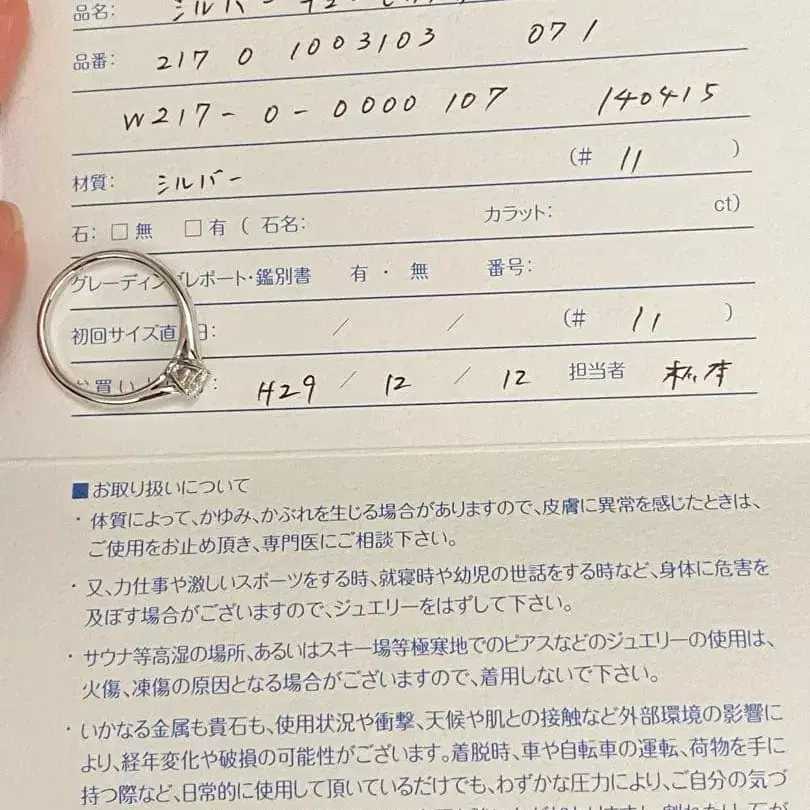 品名: シルバー
品番: 217 0 1003103 071
W217-0-0000107 140415
材質: シルバー (# 11 )
石: □ 無 □ 有 ( 石名: カラット: ct)
グレーディングレポート・鑑別書 有 ・ 無 番号:
初回サイズ直 日: / / (# 11 )
買い : H29 / 12 / 12 担当者
■お取り扱いについて
・体質によって、かゆみ、かぶれを生じる場合がありますので、皮膚に異常を感じたときは、
ご使用をお止め頂き、専門医にご相談下さい。
・又、力仕事や激しいスポーツをする時、就寝時や幼児の世話をする時など、身体に危害を
及ぼす場合がございますので、ジュエリーをはずして下さい。
・サウナ等高湿の場所、あるいはスキー場等極寒地でのピアスなどのジュエリーの使用は、
火傷、凍傷の原因となる場合がございますので、着用しないで下さい。
・いかなる金属も貴石も、使用状況や衝撃、天候や肌との接触など外部環境の影響に
より、経年変化や破損の可能性がございます。着脱時、車や自転車の運転、荷物を手に
持つ際など、日常的に使用して頂いているだけでも、わずかな圧力により、ご自分の気づ